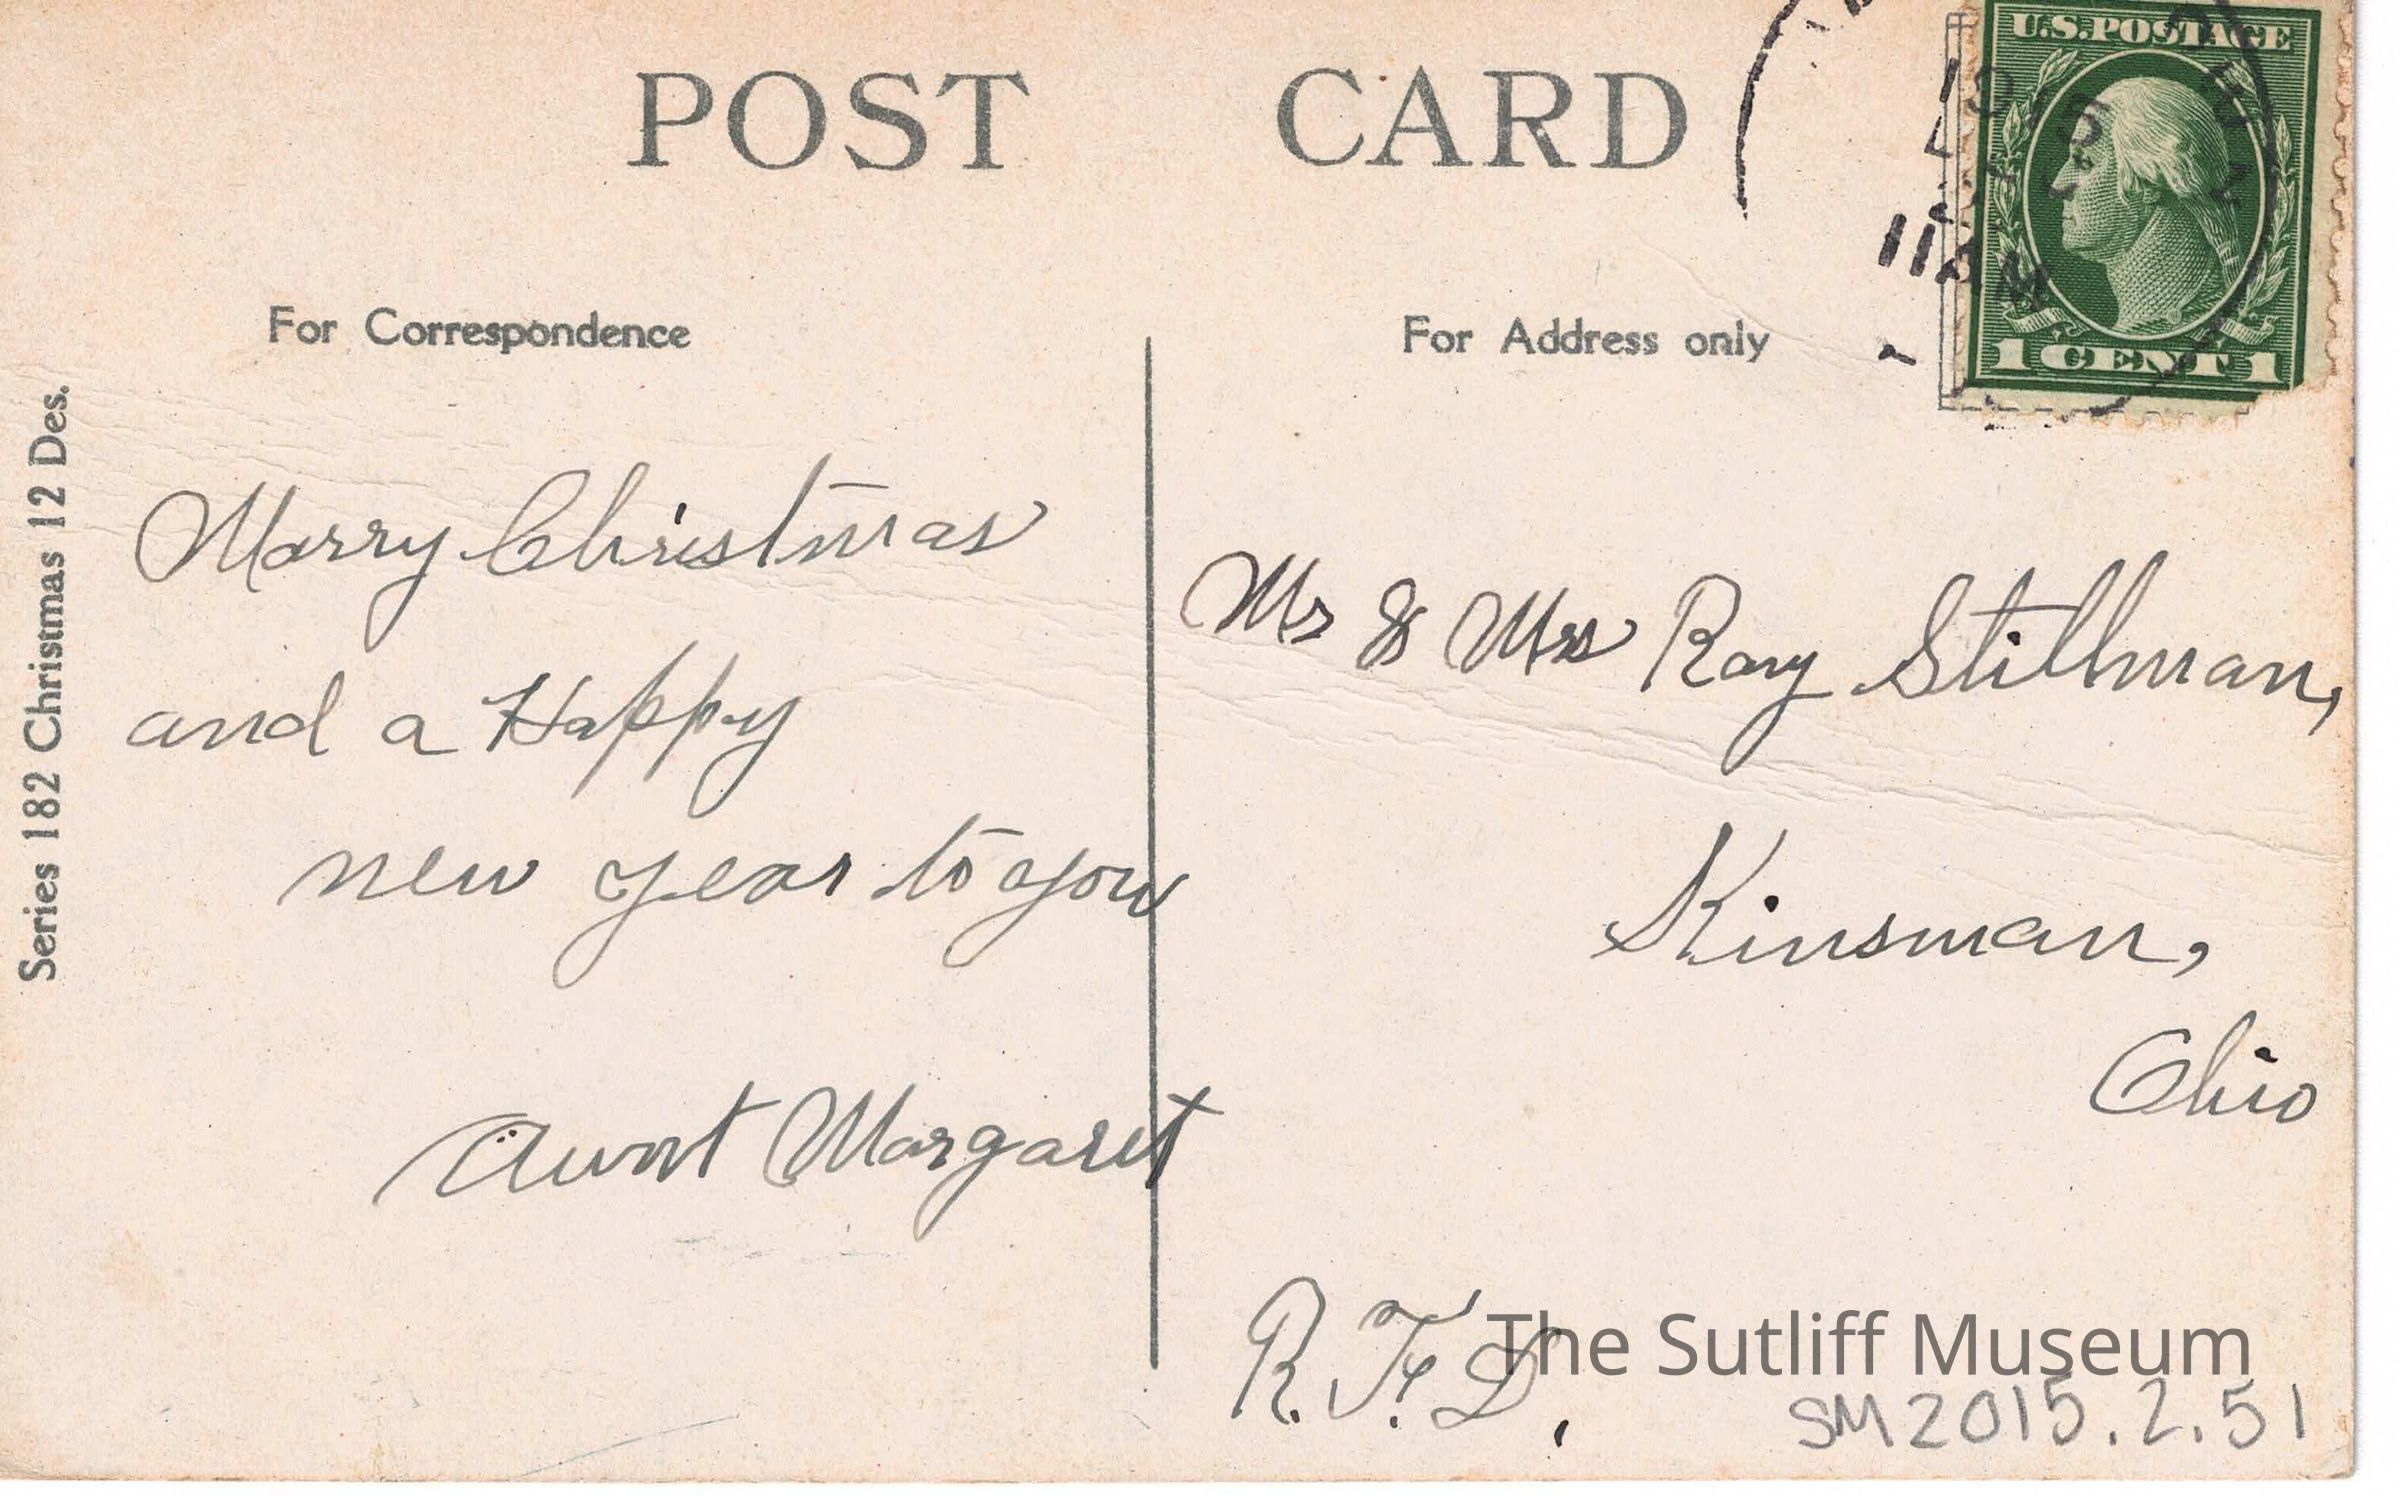 POST CARD
U.S. POSTAGE
11 AM
1 CENT 1
For Correspondence
For Address only
Series 182 Christmas 12 Des.
Marry Christmas
and a Happy
new year to you
Aunt Margaret
Mr & Mrs Ray Stillman,
Kinsman,
Ohio
R.F.D.
The Sutliff Museum
SM2015.2.51